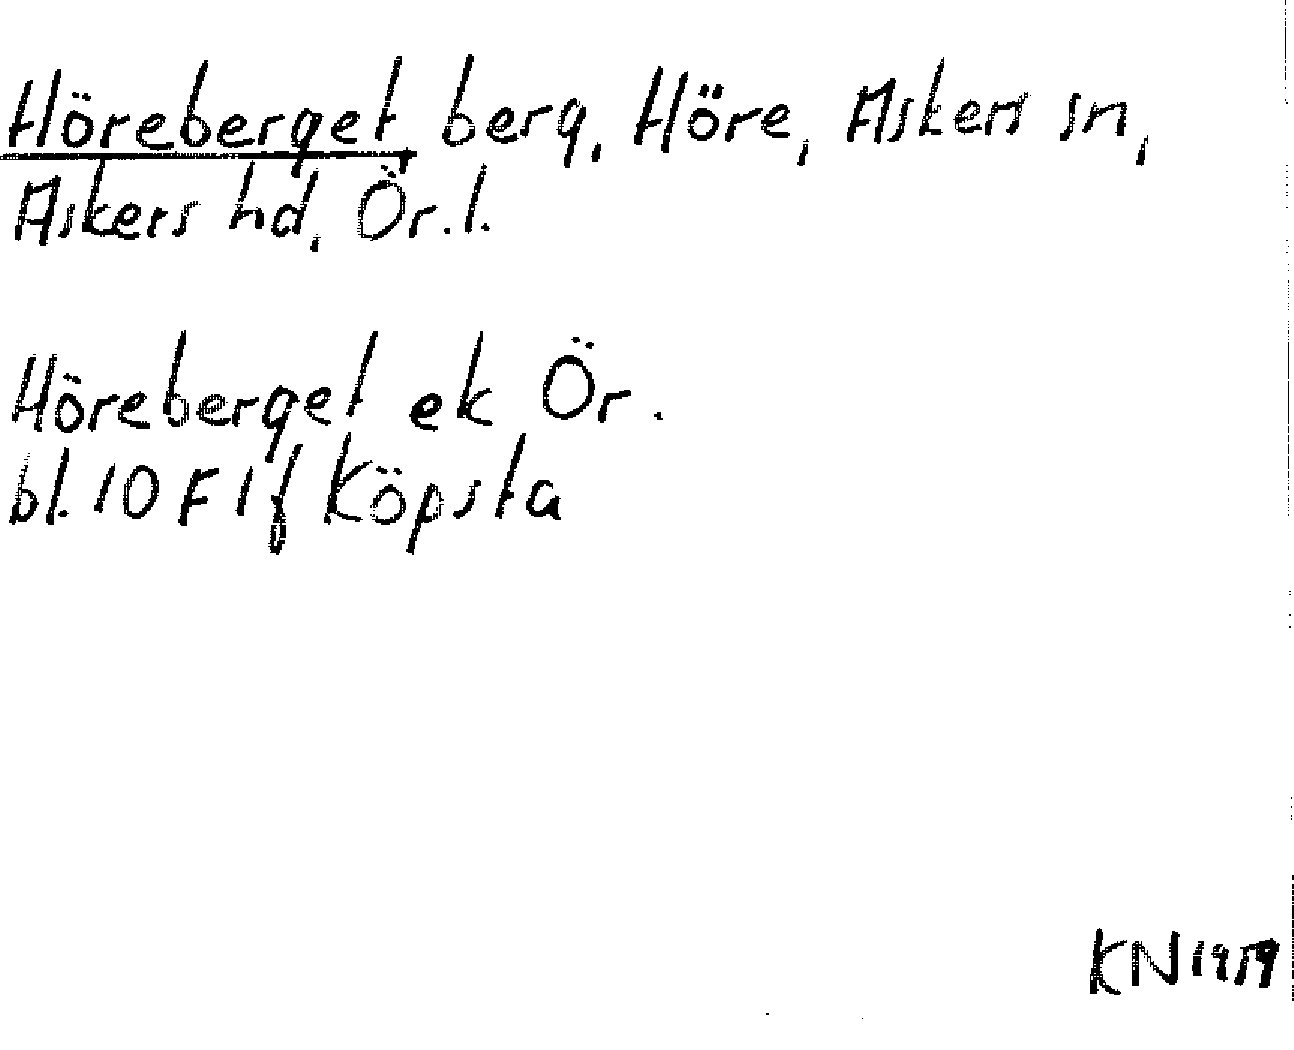 Höreberget berg, Höre, Askers sn,
Askers hd, Ör. l.
Höreberget ek Ör.
bl. 10 F 1 f Köpsta
KN 1959